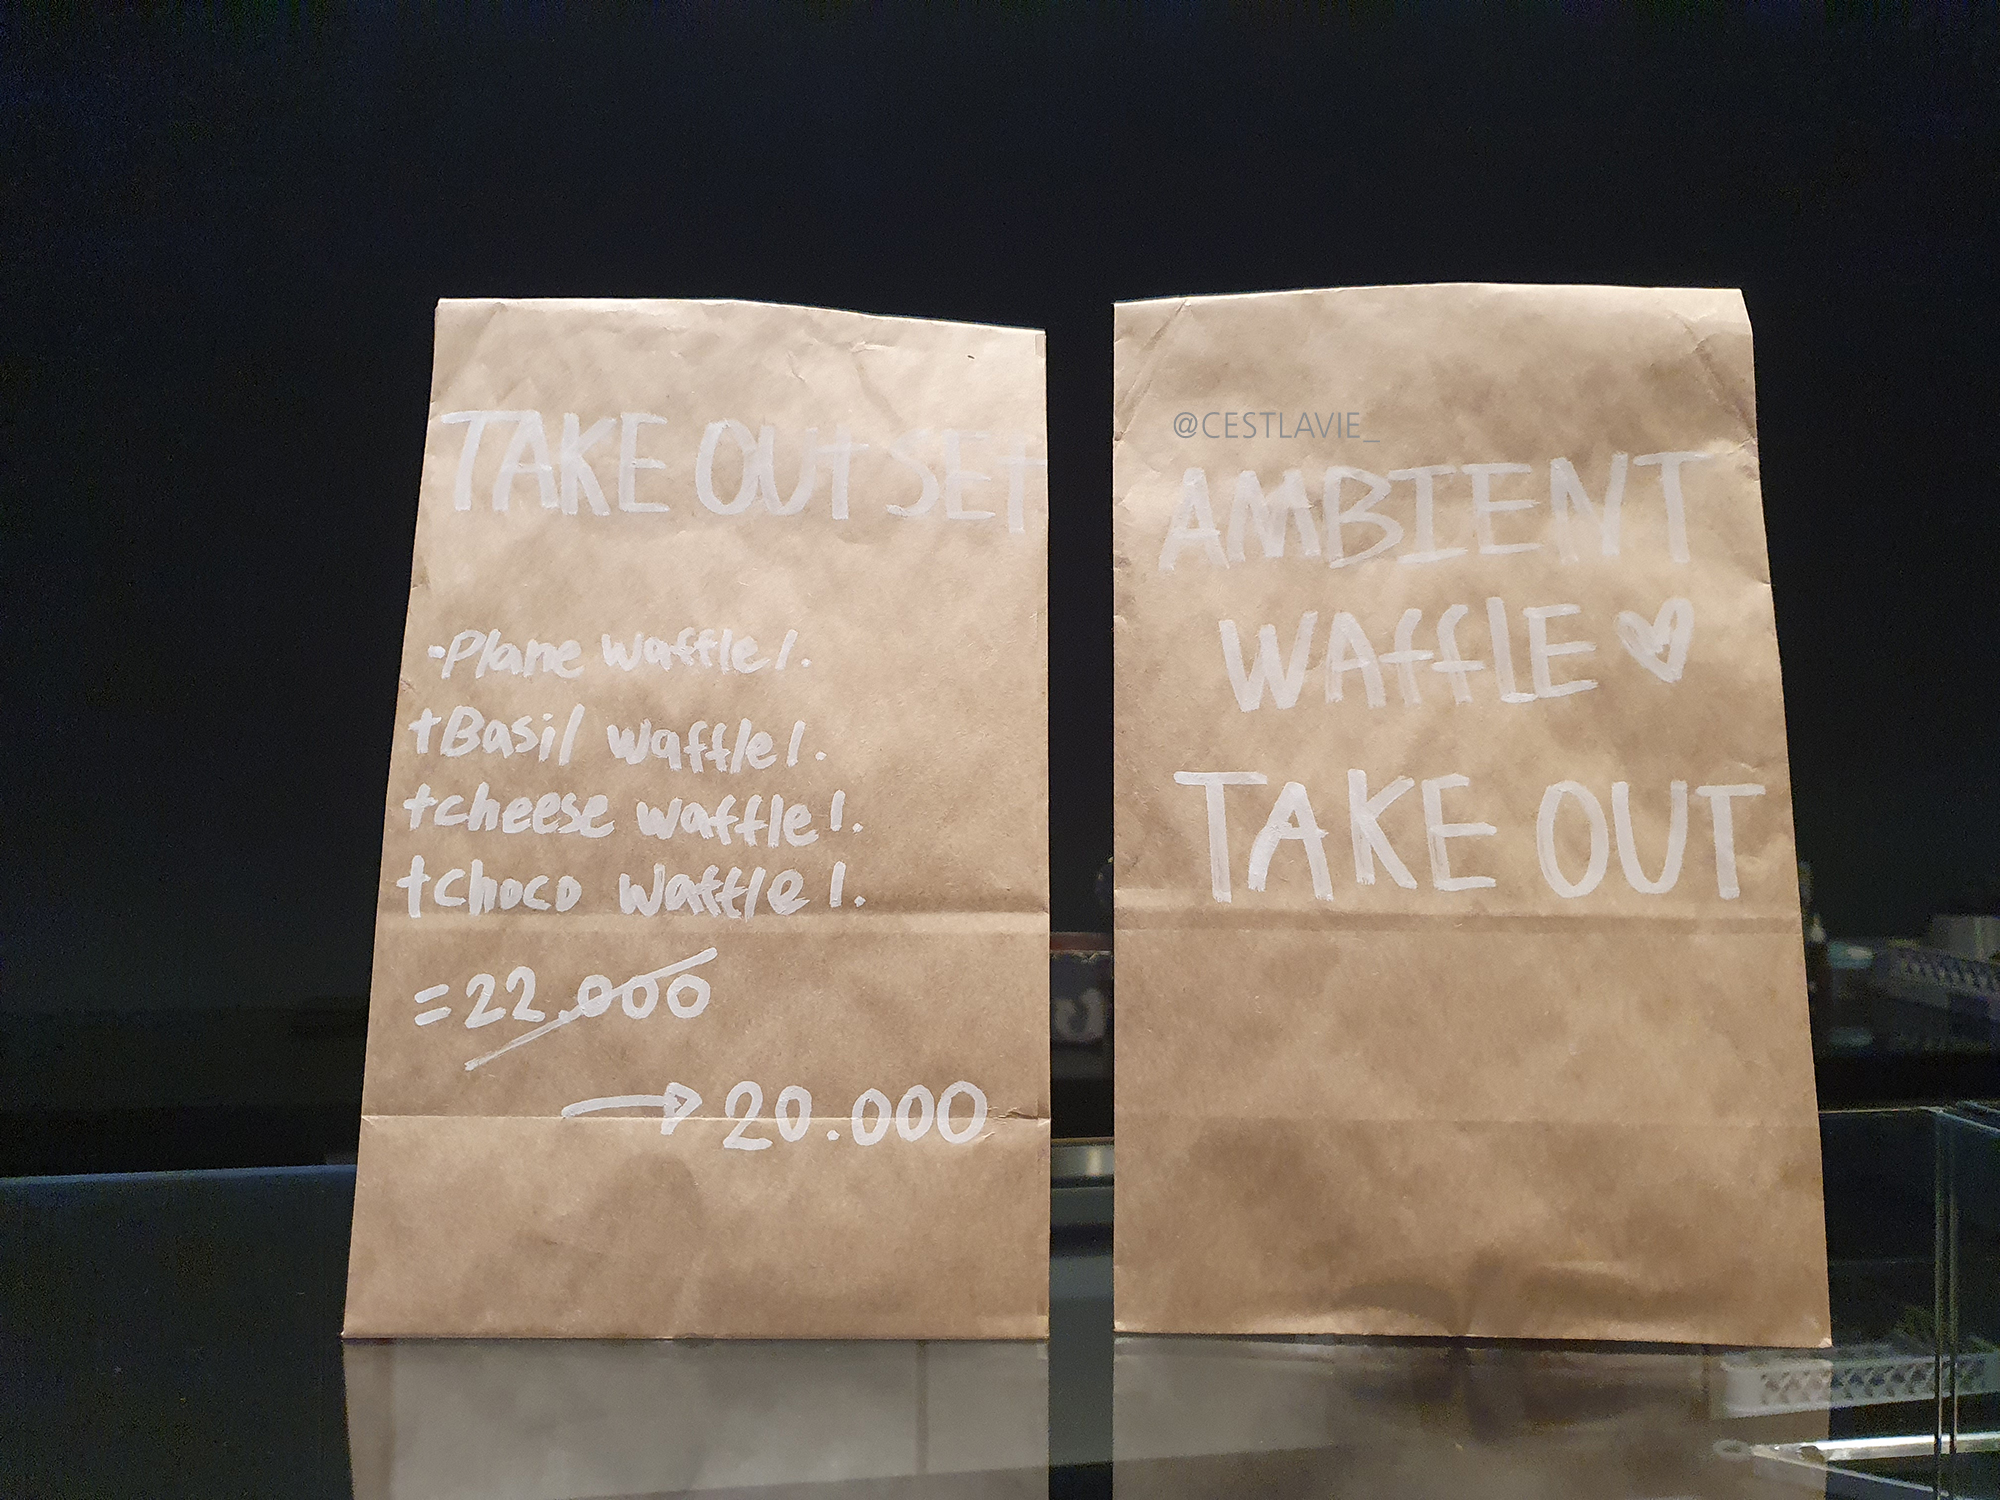 TAKE OUt SEt
·Plane waffle 1.
+Basil waffle 1.
+cheese waffle 1.
+choco waffle 1.
=22.000
→20.000
@CESTLAVIE_
AMBIENT
WAffLE♡
TAKE OUT